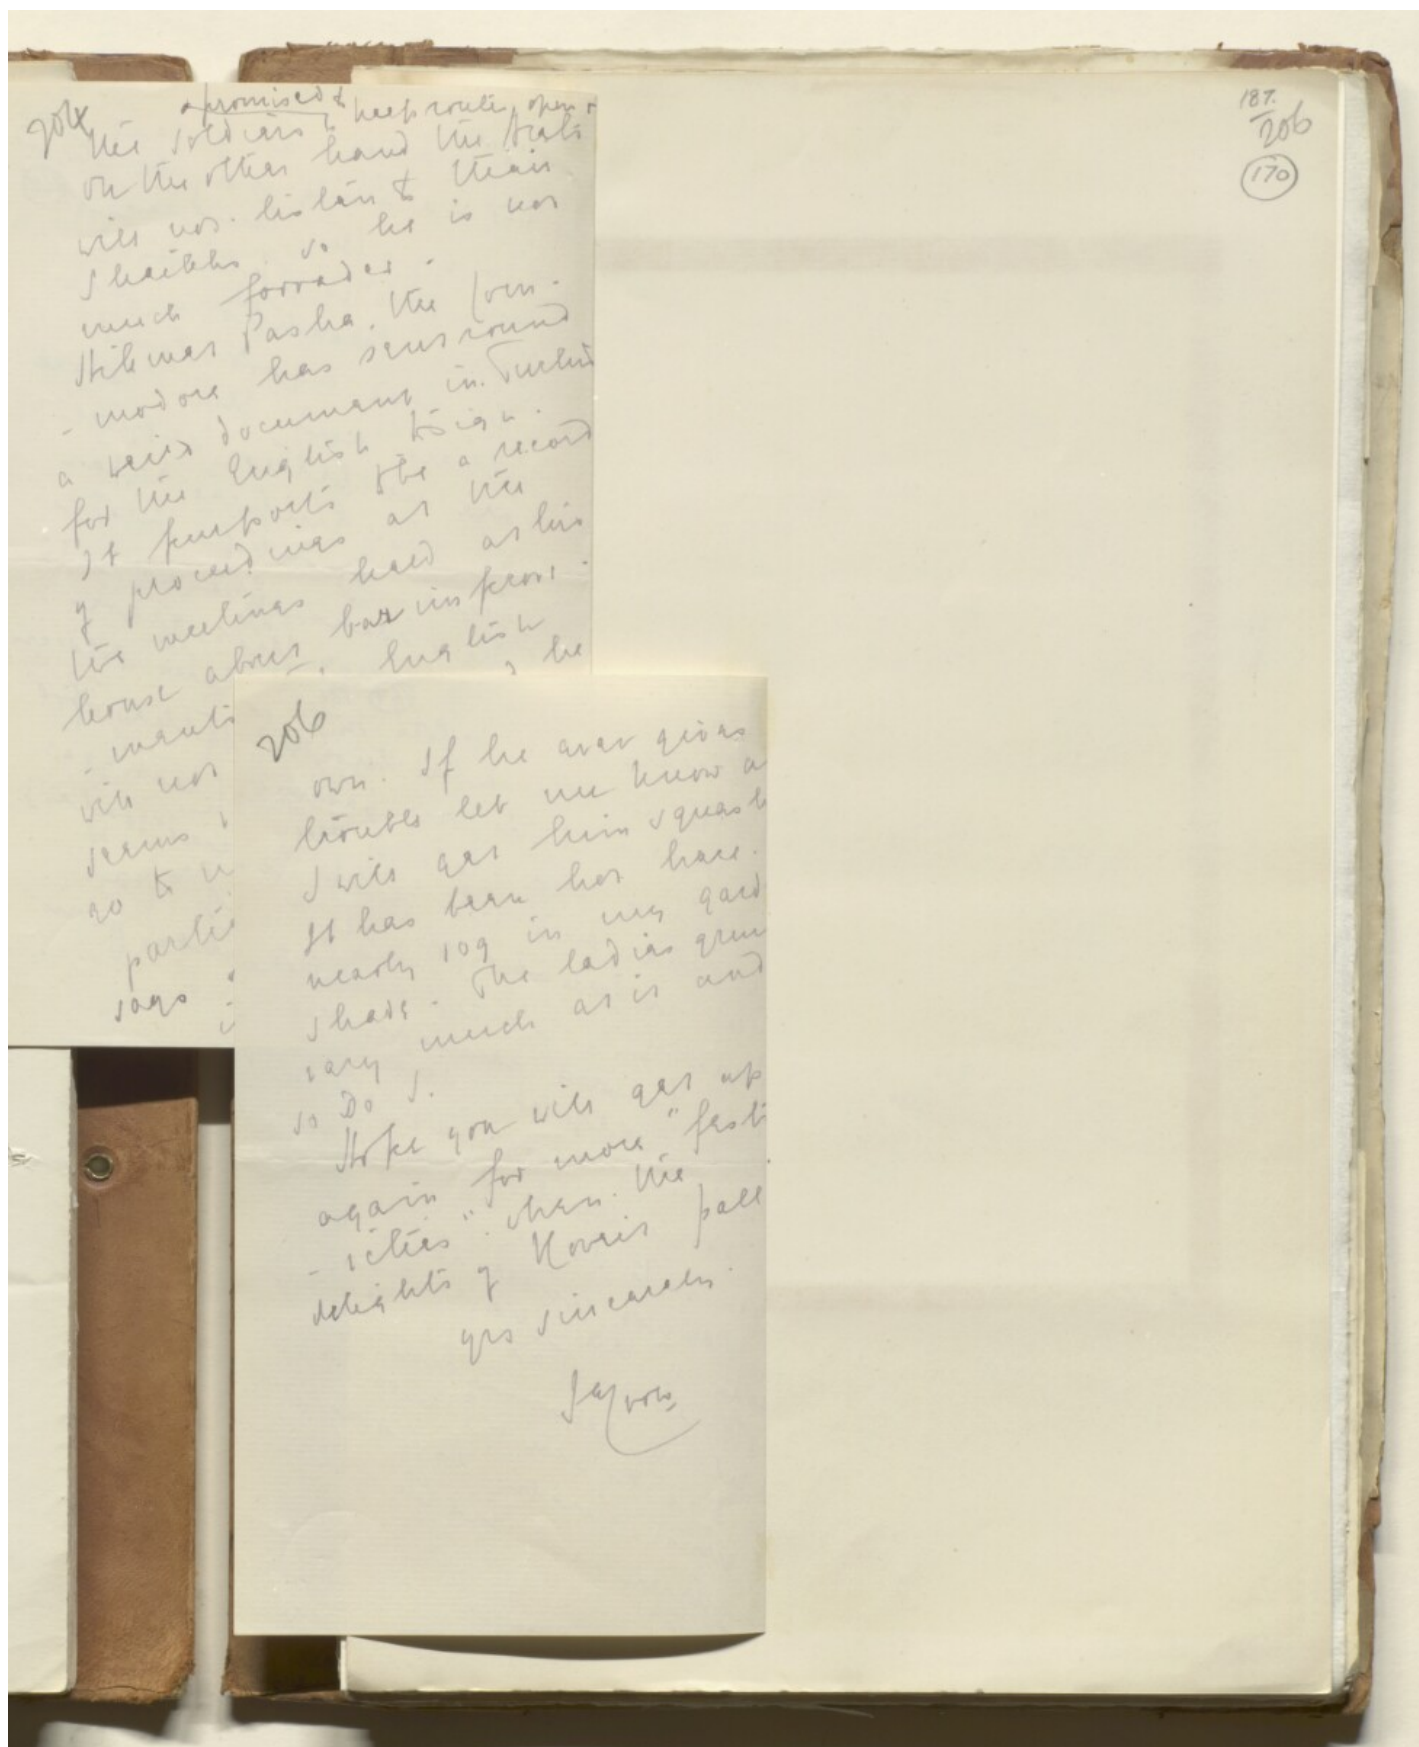 204
& promised to keep routes open &
the soldiers
on the other hand the Arabs
will not listen to their
Shaikhs so he is not
much forrader.
Hikmat Pasha. the Com-
- modore has sent round
a weird document in Turkish
for the English to sign.
It purports to be a record
of proceedings at the
two meetings held at his
house about bar
English
he
will not
seems
go to
says
206
own. If he ever gives
trouble let me know a
I will get him squash
It has been hot here.
nearly 109 in my gard
shade. The ladies
very much as is and
so do I.
Hope you will get up
again for more "festi
- vities" when the
delights of Koweit pall
yrs sincerely.
187.
206
170